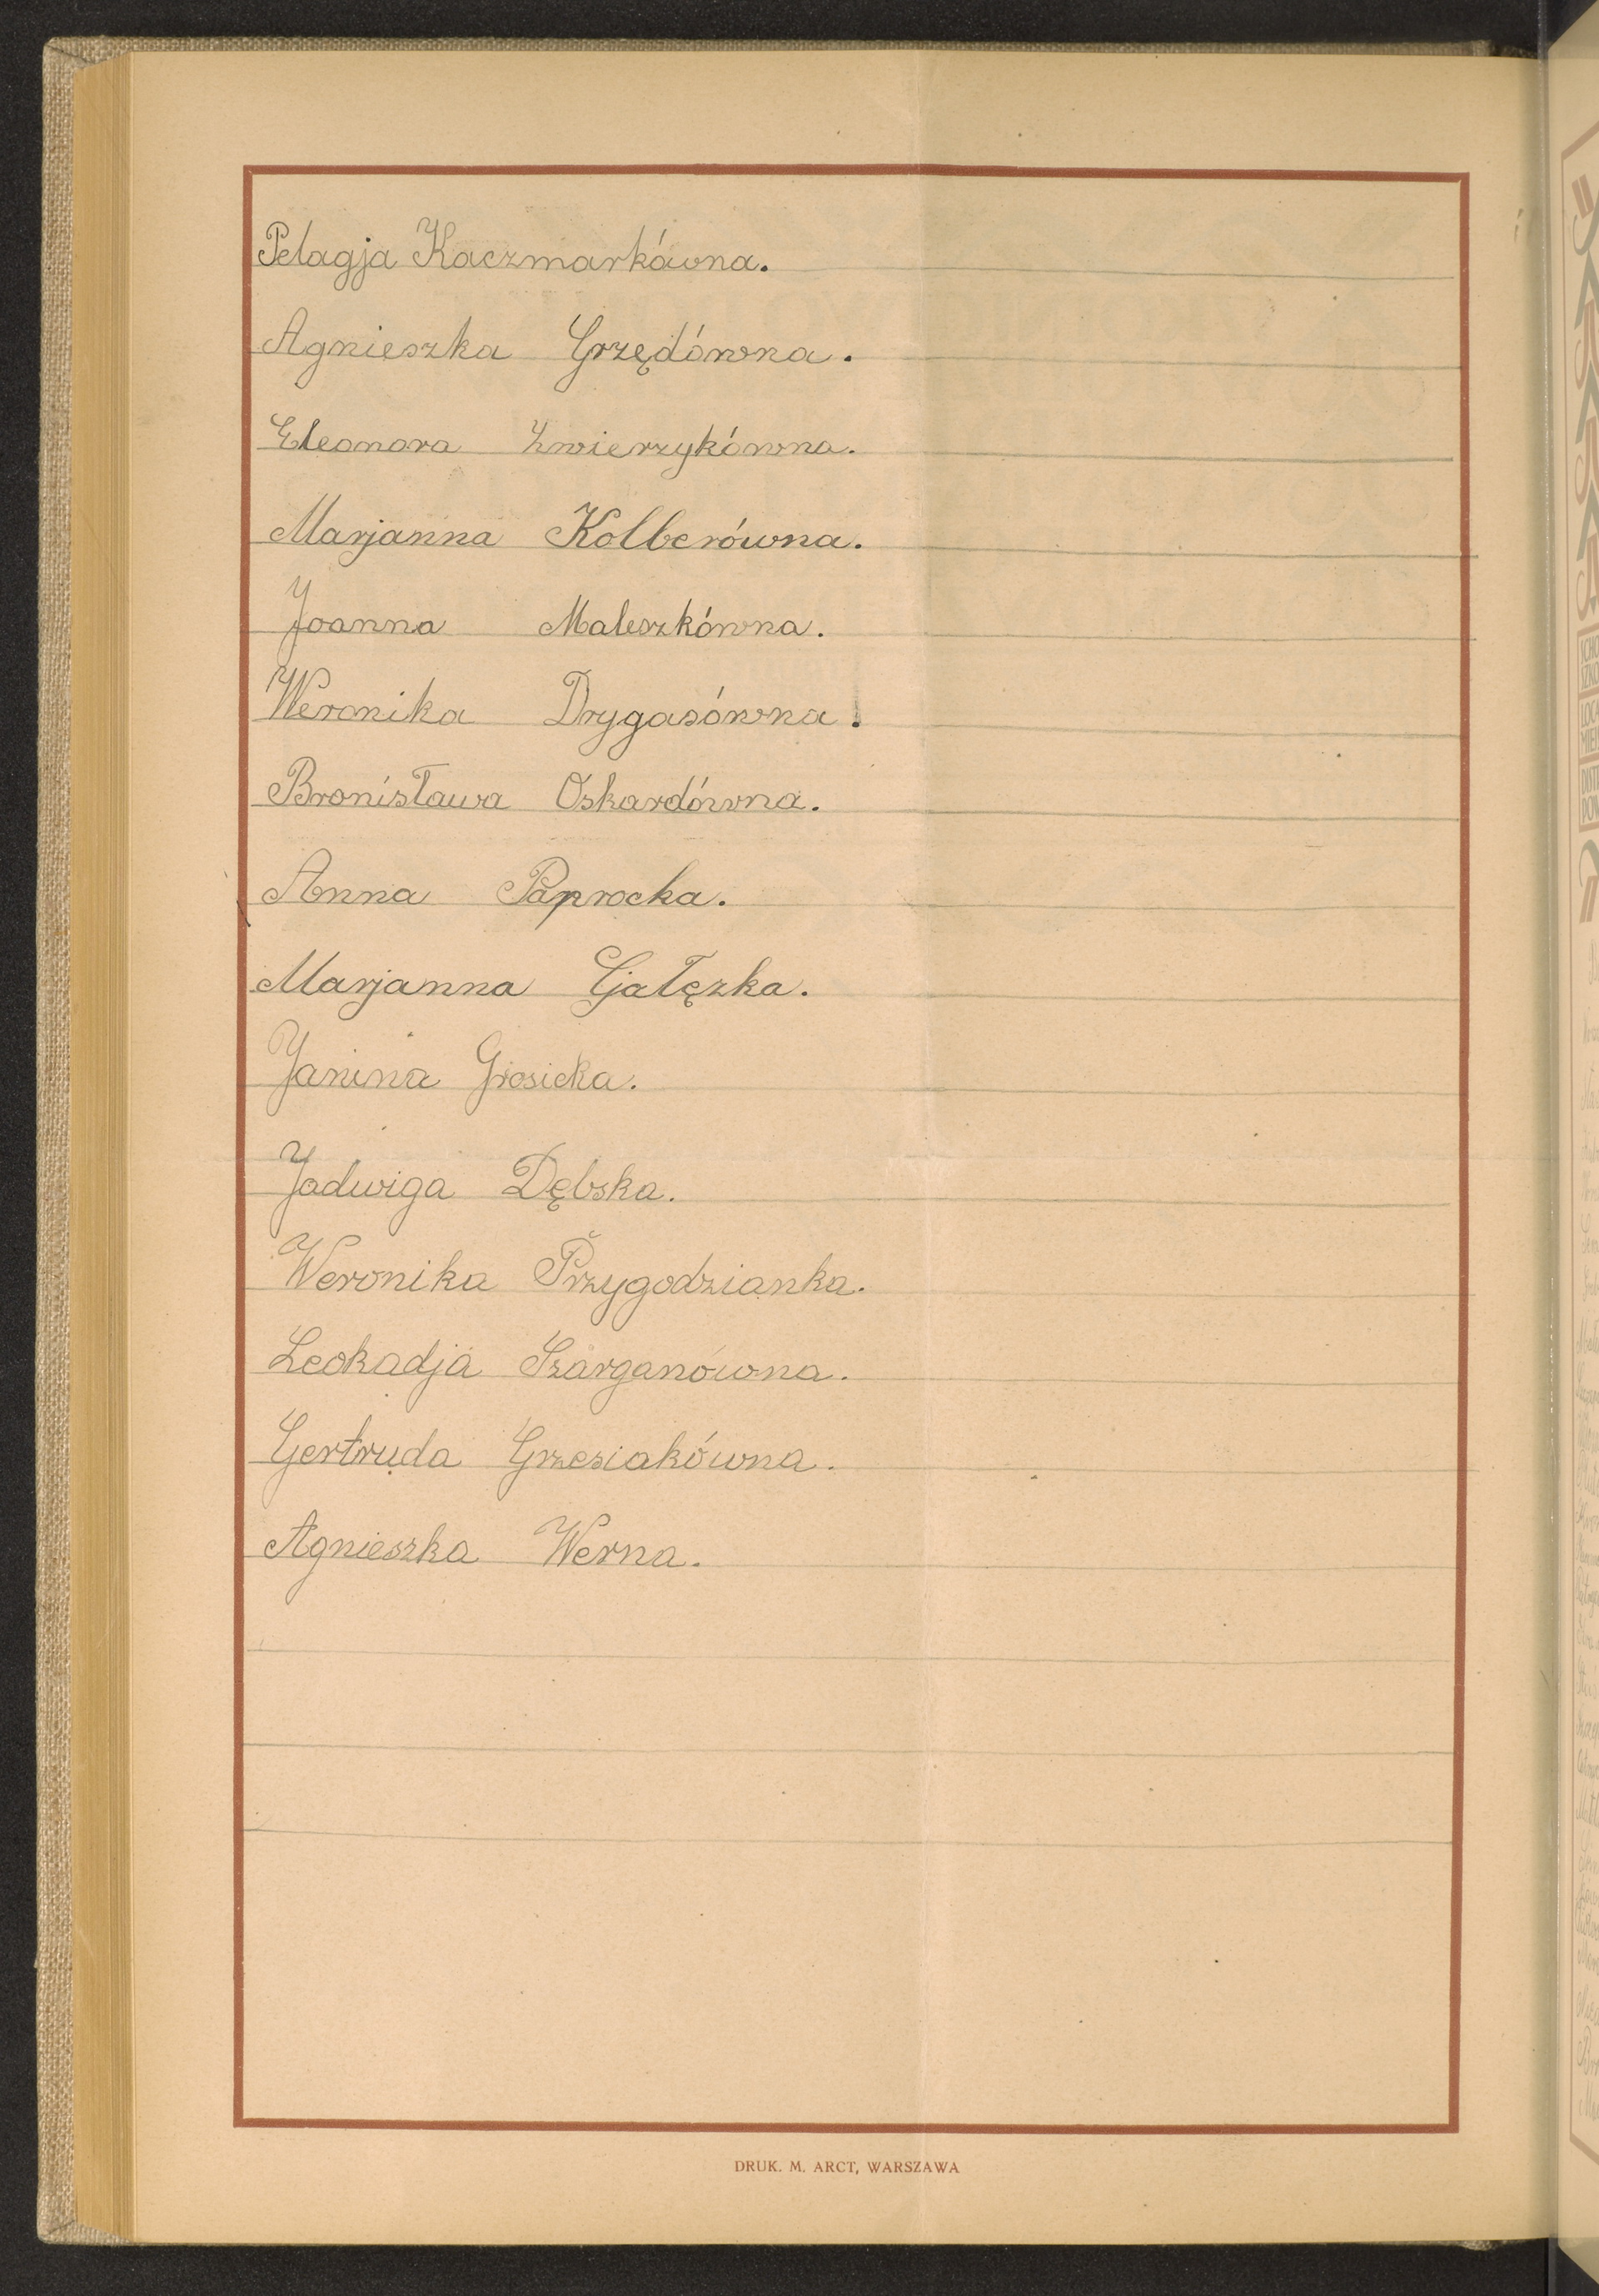 Pelagja Kaczmarkówna.
Agnieszka Grzędówna.
Eleonora Zwierzykówna.
Marjanna Kolberówna.
Joanna Maleszkówna.
Weronika Drygasówna.
Bronisława Oskardówna.
Anna Paprocka.
Marjanna Gałęzka.
Janina Grosicka.
Jadwiga Dębska.
Weronika Przygodzianka.
Leokadja Szarganówna.
Gertruda Grzesiakówna.
Agnieszka Werna.
DRUK. M. ARCT, WARSZAWA